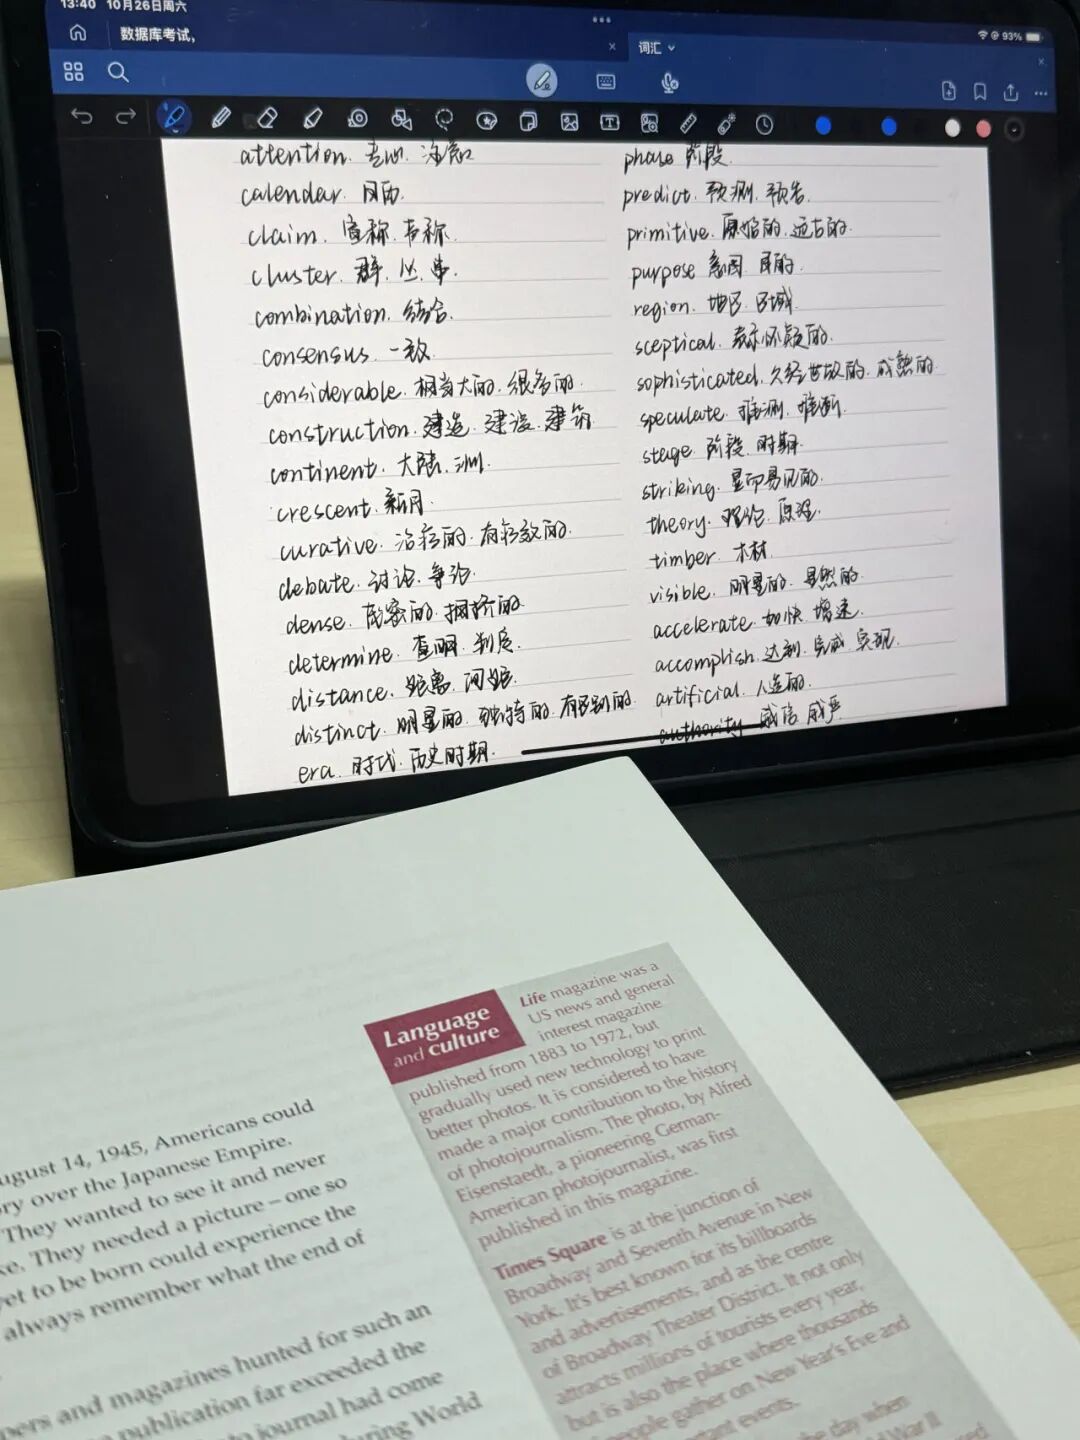 13:40 10月26日周六
93%
数据库考试,
词汇
attention. 专心. 注意
calendar. 日历.
claim. 宣称. 声称.
cluster. 群. 丛. 串.
combination. 结合.
consensus. 一致.
considerable. 相当大的. 很多的.
construction. 建造. 建设. 建筑
continent. 大陆. 洲.
crescent. 新月.
curative. 治疗的. 有疗效的.
debate. 讨论. 争论.
dense. 密的. 拥挤的.
determine. 查明. 判定.
distance. 距离. 间距.
distinct. 明显的. 独特的. 有区别的.
era. 时代. 历史时期.
phase 阶段.
predict. 预测. 预告.
primitive. 原始的. 远古的.
purpose 意图. 目的.
region. 地区. 区域
sceptical. 表示怀疑的.
sophisticated. 久经世故的. 成熟的.
speculate. 推测. 推断.
stage 阶段. 时期.
striking. 显而易见的.
theory. 理论. 原理.
timber. 木材.
visible. 明显的. 显然的.
accelerate. 加快. 增速.
accomplish. 达到. 完成. 实现.
artificial. 人造的.
authority 威信 威严
Language
and culture
Life magazine was a
US news and general
interest magazine
published from 1883 to 1972, but
gradually used new technology to print
better photos. It is considered to have
made a major contribution to the history
of photojournalism. The photo, by Alfred
Eisenstaedt, a pioneering German-
American photojournalist, was first
published in this magazine.
Times Square is at the junction of
Broadway and Seventh Avenue in New
York. It's best known for its billboards
and advertisements, and as the centre
of Broadway Theater District. It not only
attracts millions of tourists every year,
but is also the place where thousands
of people gather on New Year's Eve and
events.
the day when
War II
August 14, 1945, Americans could
over the Japanese Empire.
They wanted to see it and never
They needed a picture – one so
yet to be born could experience the
always remember what the end of
and magazines hunted for such an
publication far exceeded the
journal had come
during World